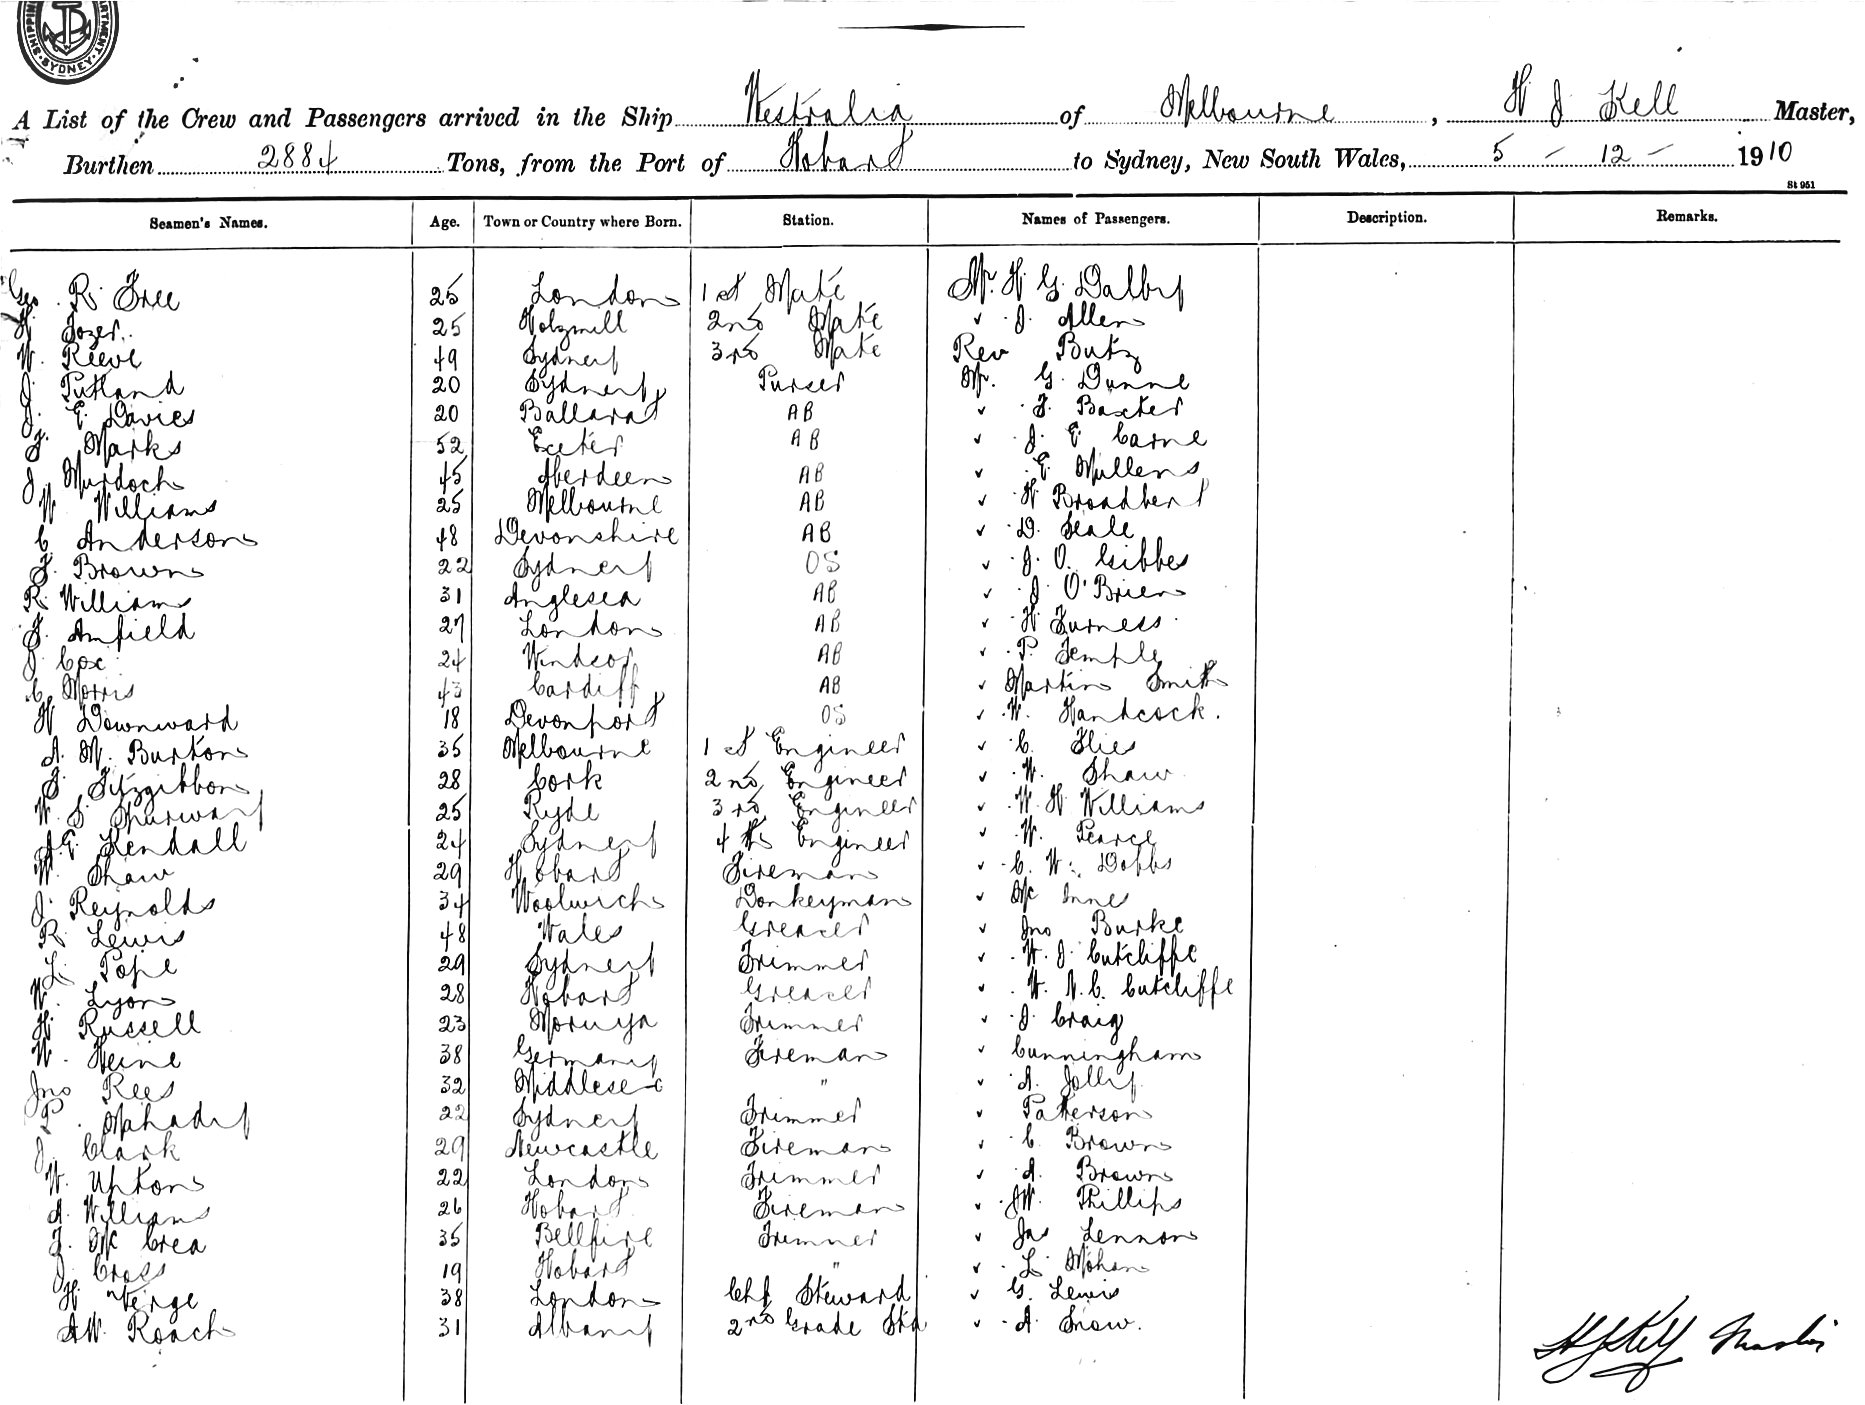 SHIPPING DEPARTMENT. SYDNEY.
A List of the Crew and Passengers arrived in the Ship Westralia of Melbourne, H J Kell Master,
Burthen 2884 Tons, from the Port of Hobart to Sydney, New South Wales, 5 - 12 - 1910
St 951
Seamen's Names. Age. Town or Country where Born. Station. Names of Passengers. Description. Remarks.
Geo. R. Free 25 London 1st Mate Mr. H G Dalby
H Tozer. 25 Holzmill 2nd Mate " J. Allen
W. Reeve 49 Sydney 3rd Mate Rev Butz
J. Putland 20 Sydney Purser Mr. G. Dunne
J. E. Davies 20 Ballarat AB " F. Baxter
F. Marks 52 Exeter AB " J. E. Carne
J. Murdoch 45 Aberdeen AB " E. Mullens
W Williams 25 Melbourne AB " H Broadbent
C. Anderson 48 Devonshire AB " D. Seale
F. Brown 22 Sydney OS " J. O. Gibbes
R. Williams 31 Anglesea AB " J. O'Brien
F. Amfield 27 London AB " H Furness
J. Cox 24 Windsor AB " P. Temple
C. Morris 43 Cardiff AB " Martin Smith
H Downward 18 Devonport OS " W. Handcock.
A. M. Burton 35 Melbourne 1st Engineer " C. Flies
F. Fitzgibbon 28 Cork 2nd Engineer " W. Shaw
W. S. 25 Ryde 3rd Engineer " W. H Williams
A E. Kendall 24 Sydney 4th Engineer " W. Pearce
W. Shaw 29 Hobart Fireman " C. W. Dobbs
J. Reynolds 34 Woolwich Donkeyman " Mc Innes
R. Lewis 48 Wales Greaser " Jno Burke
L. Pope 29 Sydney Trimmer " W. J. Cutcliffe
W. Lyon 28 Hobart Greaser " W. N. C. Cutcliffe
H Russell 23 Moruya Trimmer " J Craig
W. Heine 38 Germany Fireman " Cunningham
Jno Rees 32 Middlesex " " A. Jolly
P. Mahady 22 Sydney Trimmer " Patterson
J. Clark 29 Newcastle Fireman " C. Brown
W. Upton 22 London Trimmer " A. Brown
A. Williams 26 Hobart Fireman " JW. Phillips
F. Mc Crea 35 Bellfire Trimmer " Jas Lennon
J. Cross 19 Hobart " " L. Mohan
H Verge 38 London Chf Steward " G. Lewis
AW. Roach 31 Albany 2nd Grade Std " A. Snow.
H J Kell Master